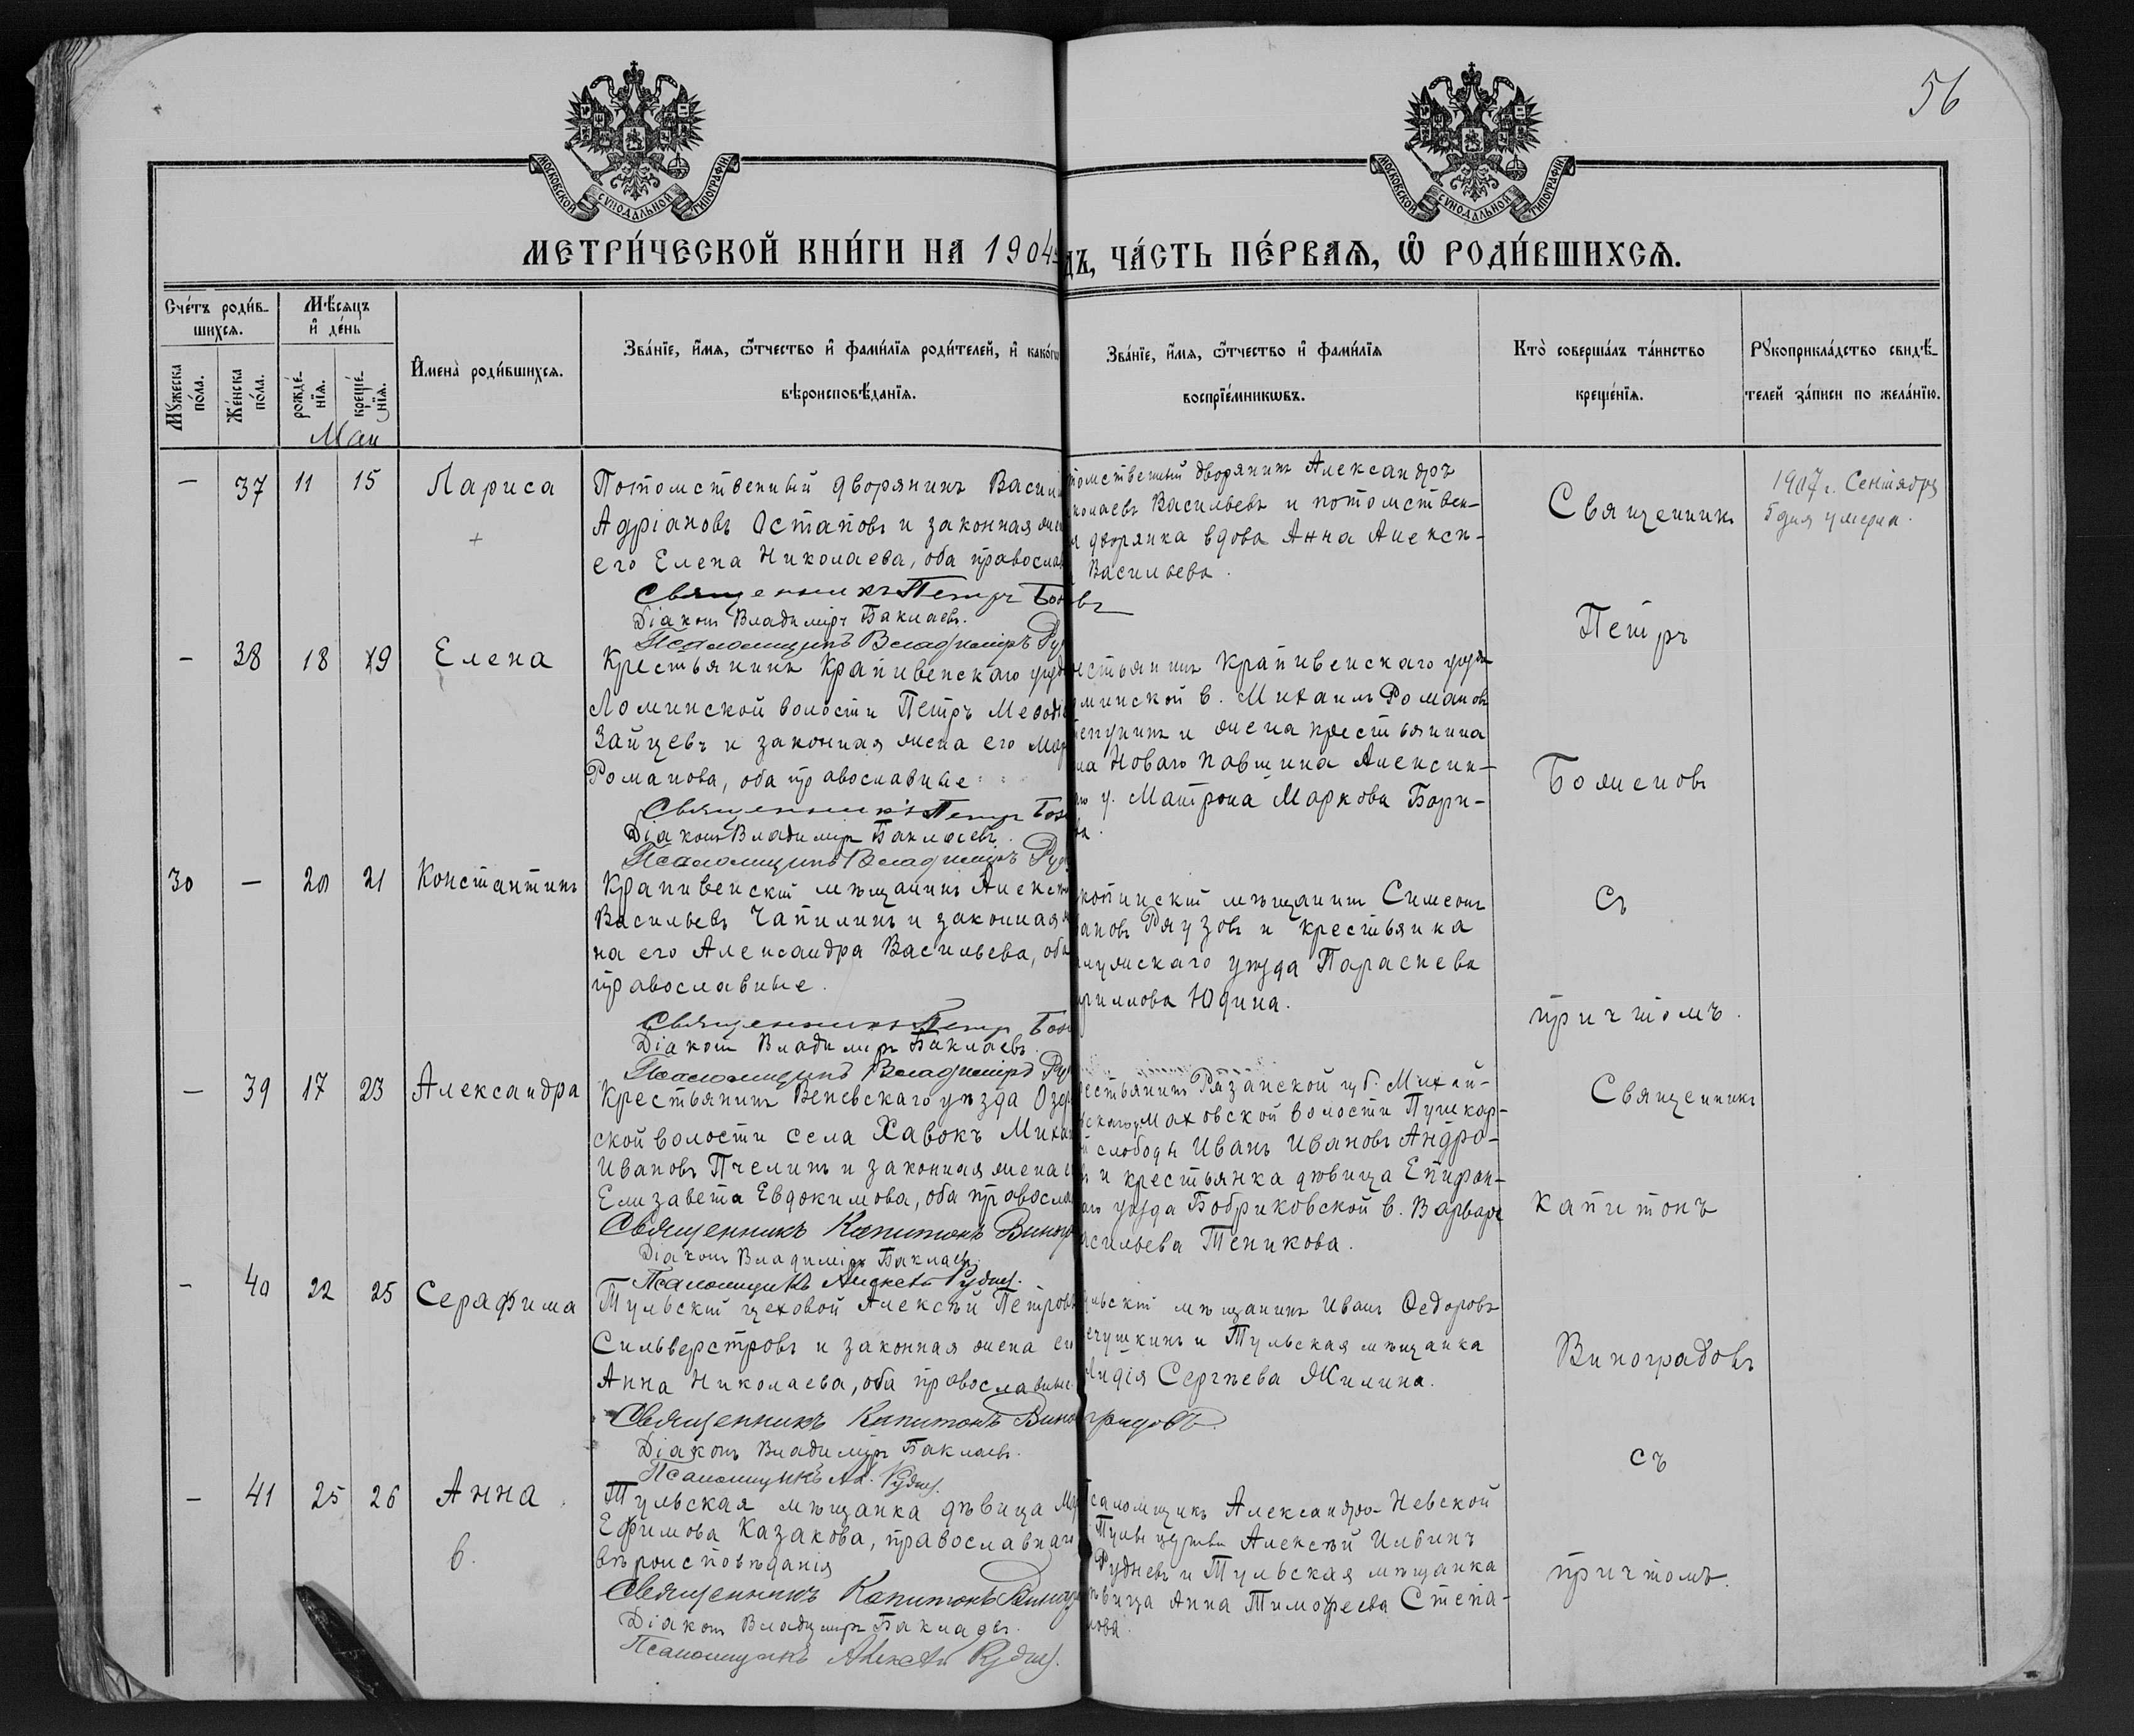 56
МОСКОВСКОЙ СУНОДАЛЬНОЙ ТИПОГРАФІИ
МОСКОВСКОЙ СУНОДАЛЬНОЙ ТИПОГРАФІИ
МЕТРИ́ЧЕСКОЙ КНИ́ГИ НА 1904
ДЪ, ЧА́СТЬ ПЕ́РВАѦ, Ѡ҆ РОДИ́ВШИХСѦ.
Сче́тъ роди́в-
шихсѧ.
Мꙋ́жеска по́ла.
Же́нска по́ла.
Мѣ́сѧцъ
и҆ де́нь
рожде́-
нїѧ.
креще́-
нїѧ.
Маи
И҆мена̀ роди́вшихсѧ.
Зва́нїе, и҆́мѧ, ѻ҆́тчество и҆ фами́лїѧ роди́телей, и҆ како́гѡ
вѣроисповѣ́данїѧ.
Зва́нїе, и҆́мѧ, ѻ҆́тчество и҆ фами́лїѧ
воспрїе́мникѡвъ.
Кто̀ соверша́лъ та́инство
креще́нїѧ.
Рꙋкоприкла́дство свидѣ́-
телей за́писи по жела́нїю.
— 37 11 15 Лариса
Потомственный дворянинъ Васил
Адріановъ Остаповъ и законная же
его Елена Николаева, оба правосла
Священникъ Петръ Бо
Діаконъ Владиміръ Баклаевъ.
Псаломщикъ Владиміръ Ру
томственный дворянинъ Александръ
колаевъ Васильевъ и потомствен-
я дворянка вдова Анна Алексѣ-
Васильева.
Священникъ
Петръ
Боженовъ
съ
причтомъ.
1907 г. Сентября
5 дня умерла.
— 38 18 19 Елена
Крестьянинъ Крапивенскаго уѣзда
Ломинской волости Петръ Меѳоді
Зайцевъ и законная жена его Мар
Романова, оба православные
Священникъ Петръ Бож
Діаконъ Владиміръ Баклаевъ.
Псаломщикъ Владиміръ Руд
естьянинъ Крапивенскаго уѣзда
минской в. Михаилъ Романовъ
и жена крестьянина
ла Новаго Павшина Алексин-
го у. Матрона Маркова Бори-
ва.
30 — 20 21 Константинъ
Крапивенскій мѣщанинъ Алексѣ
Васильевъ Чапилинъ и законная
на его Александра Васильева, оба
православные.
Священникъ Петръ Бож
Діаконъ Владиміръ Баклаевъ.
Псаломщикъ Владиміръ Ру
копинскій мѣщанинъ Симеонъ
ановъ Ряузовъ и крестьянка
лужскаго уѣзда Параскева
рилова Юдина.
— 39 17 23 Александра
Крестьянинъ Веневскаго уѣзда
ской волости села Хавокъ Миха
Ивановъ Пчелинъ и законная жена е
Елизавета Евдокимова, оба правосла
Священникъ Капитонъ Виног
Діаконъ Владиміръ Баклаевъ.
Псаломщикъ Алексѣй Рудн
естьянинъ Рязанской губ. Михай-
вскаго у. Маховской волости Пушкар-
й слободы Иванъ Ивановъ Андро-
въ и крестьянка дѣвица Епифан-
аго уѣзда Бобриковской в. Варвара
асильева Теникова.
Священникъ
Капитонъ
Виноградовъ
съ
причтомъ.
— 40 22 25 Серафима
Тульскій цеховой Алексѣй Петровъ
Сильверстровъ и законная жена ег
Анна Николаева, оба православные
Священникъ Капитонъ Виноградовъ.
Діаконъ Владиміръ Баклаевъ.
Псаломщикъ Ал. Рудн
ульскій мѣщанинъ Иванъ Ѳедоровъ
ечушкинъ и Тульская мѣщанка
Лидія Сергѣева Жилина.
— 41 25 26 Анна
в.
Тульская мѣщанка дѣвица Ма
Ефимова Казакова, православнаго
вѣроисповѣданія
Священникъ Капитонъ Виног
Діаконъ Владиміръ Баклаевъ.
Псаломщикъ Алексѣй Рудн
саломщикъ Александро-Невской
Тулы церкви Алексѣй Ильинъ
Рудневъ и Тульская мѣщанка
ѣвица Анна Тимофеева Степа-
нова.